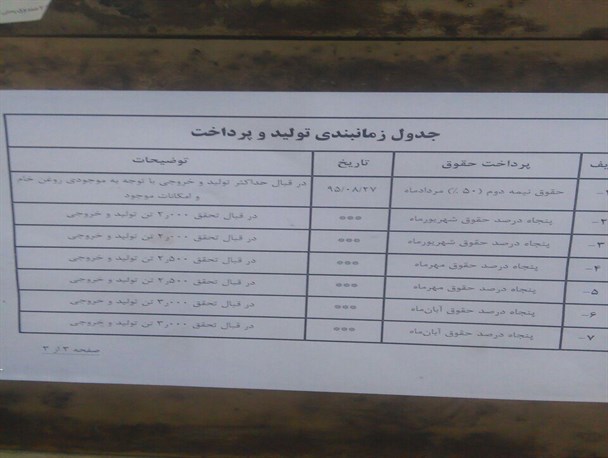 جدول زمانبندی تولید و پرداخت
یف پرداخت حقوق تاریخ توضیحات
۱- حقوق نیمه دوم (۵۰ ٪) مردادماه ۹۵/۰۸/۲۷ در قبال حداکثر تولید و خروجی با توجه به موجودی روغن خام
و امکانات موجود
۲- پنجاه درصد حقوق شهریورماه *** در قبال تحقق ۲٫۰۰۰ تن تولید و خروجی
۳- پنجاه درصد حقوق شهریورماه *** در قبال تحقق ۲٫۰۰۰ تن تولید و خروجی
۴- پنجاه درصد حقوق مهرماه *** در قبال تحقق ۲٫۵۰۰ تن تولید و خروجی
۵- پنجاه درصد حقوق مهرماه *** در قبال تحقق ۲٫۵۰۰ تن تولید و خروجی
۶- پنجاه درصد حقوق آبان‌ماه *** در قبال تحقق ۳٫۰۰۰ تن تولید و خروجی
۷- پنجاه درصد حقوق آبان‌ماه *** در قبال تحقق ۳٫۰۰۰ تن تولید و خروجی
صفحه ۳ از ۳